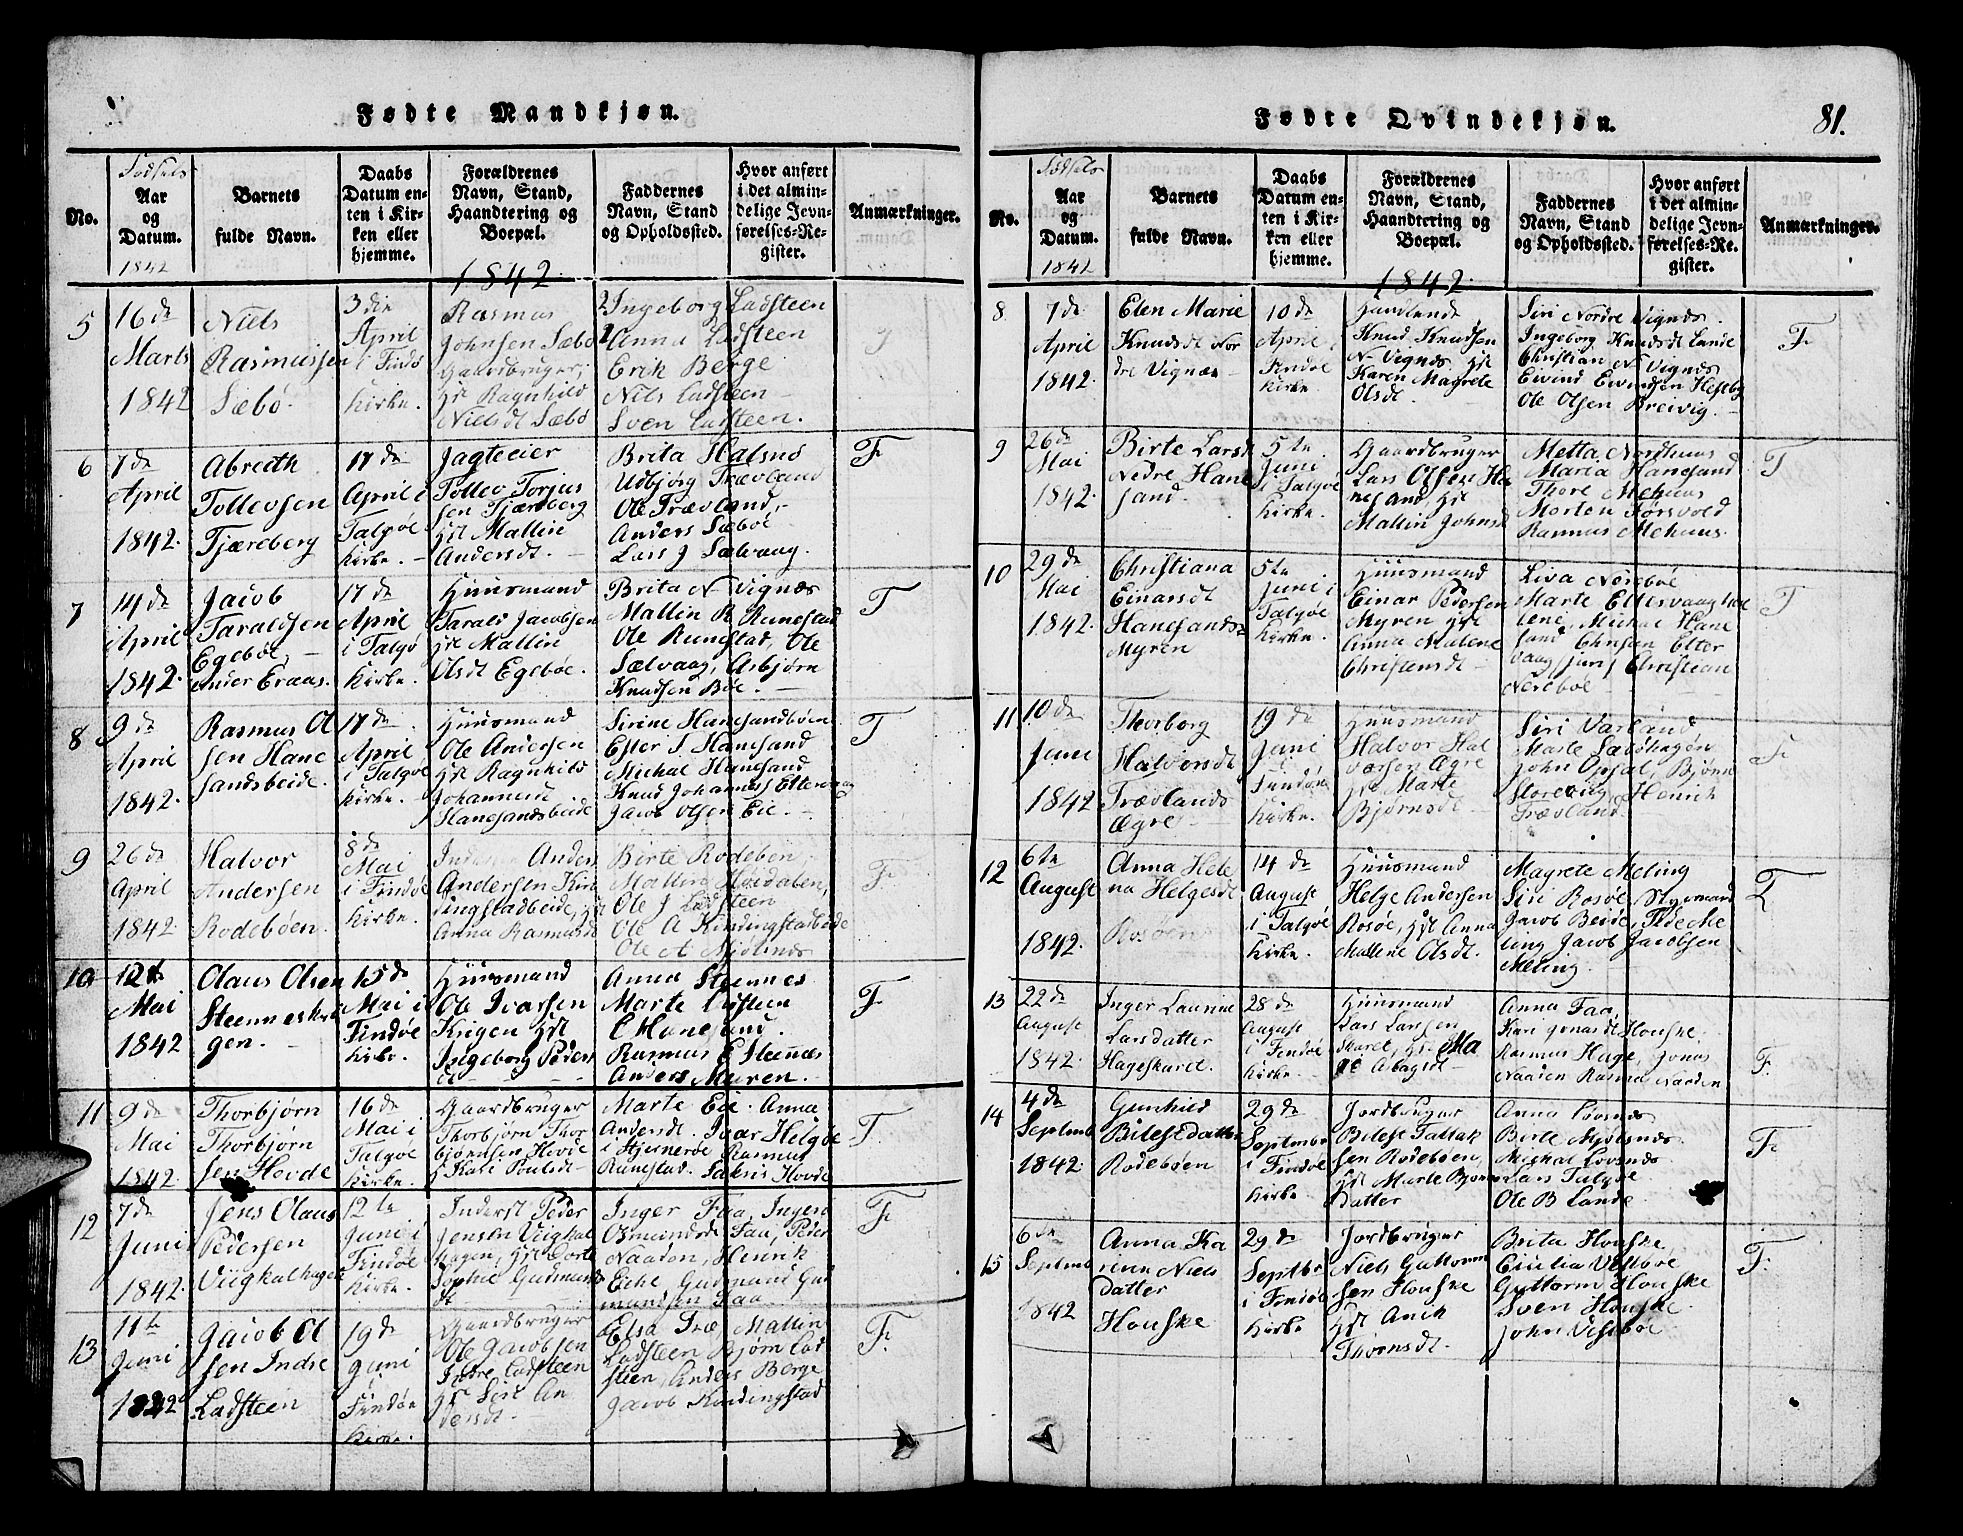 Fødte Mandkjøn.
No.
Fødsels
Aar
og
Datum.
1842
Barnets
fulde Navn.
Daabs
Datum en-
ten i Kir-
ken eller
hjemme.
Forældrenes
Navn, Stand,
Haandtering og
Boepæl.
1842.
Faddernes
Navn, Stand
og Opholdssted.
Hvor anført
i det almin-
delige Jevn-
førelses-Re-
gister.
Anmærkninger.
5
16de
Marts
1842
Niels
Rasmussen
Sæbö.
3die
April
i Findö
Kirke.
Rasmus
Johnsen Sæbö
Gaardbruger;
Hst Ragnhild
Nielsdt Sæbö
Ingeborg Ladsteen
Anna Ladsteen
Erik Berge
Nils Ladsteen
Sven Ladsteen.
6
7de
April
1842.
Abreth
Tollevsen
Tjæreberg
17de
April i
Talgöe
Kirke. -
Jagteeier
Tollev Torjus
sen Tjæreberg
Hst Mallin
Andersdt. -
Brita Halsnö
Udbjörg Trævland
Ole Trævland,
Anders Sæböe
Lars J Sælvaag.
F
7
14de
April
1842.
Jacob
Taraldsen
Egeböe, -
under Eraas.
17de
April
i Talgö
Kirke.
Huusmand
Tarald Jacobsen
Hst Mallin
Olsdt Egeböe.
Brita N Vignæs
Mallin R Runestad
Ole Runestad, Ole
Sælvaag, Asbjörn
Knudsen Böe. -
F
8
9de
April
1842.
Rasmus Ol
sen Hane
sandsbeide.
17de
April
i Talgöe
Kirke. -
Huusmand
Ole Andersen
Hst Ragnhild
Johannesdt
Hanesandsbeide
Sirine Hanesandböen
Ester J Hanesand
Michal Hanesand
Knud Johannes Eltervaag
Jacob Olsen Eie. -
F
9
26de
April
1842.
Halvor
Andersen
Rodeböen.
8de
Mai
i Findöe
Kirke.
Inderst Anders
Andersen Kin
dingstadbeide, Hst
Anna Rasmusdt
Birte Rodeböen,
Mallin Höidalen,
Ole J Ladsteen
Ole A Kindingstadbeide
Ole A Mjölsnæs
F
10
12te
Mai
1842
Claus Olsen
Steenneskri
gen. -
15de
Mai i
Findöe
Kirke.
Huusmand
Ole Ivarsen
Krigen Hst
Ingeborg Peders
dt
Anna Steennes
Marte Ladsteen
E Hanesand.
Rasmus E Steennæs
Anders Myren. -
F
11
9de
Mai
1842.
Thorbjörn
Thorbjörn
sen Hovde
16de
Mai i
Talgöe
Kirke.
Gaardbruger
Thorbjörn Thor
björnsen Hovde
H Kari Poulsdt -
Marte Eie. Anna
Andersdt. Ivar Helgöe
i Stjerneröe Rasmus
Runestad. Sakris Hovde
F.
12
7de
Juni
1842.
Jens Claus
Pedersen
Viigkalhagen
12te
Juni i
Findöe
Kirke.
Inderst Peder
Jensen Viigkal
hagen, Hst Dorte
Sophie Gudmunds
dt.
Inger Faa, Ingeri
Osmundsdt Faa, Peder
Naaden, Henrik
Eike, Gudmund Gud
mundsen Faa
F
13
11te
Juni
1842
Jacob Ol
sen Indre
Ladsteen
19de
Juni
i
Findöe
Kirke.
Gaardbruger
Ole Jacobsen
Indre Ladsteen
Hst Siri An
dersdt. -
Elsa Træ, Mallin
Ladsteen Bjørn Lad
steen, Anders Berge
Jacob Kindingstad
F.
Fødte Qvindekjøn.
81.
No.
Fødsels
Aar
og
Datum.
1842
Barnets
fulde Navn.
Daabs
Datum en-
ten i Kir-
ken eller
hjemme.
Forældrenes
Navn, Stand,
Haandtering og
Boepæl.
1842.
Faddernes
Navn, Stand
og Opholdssted.
Hvor anført
i det almin-
delige Jevn-
førelses-Re-
gister.
Anmærkninger.
8
7de
April
1842.
Elen Marie
Knudsdt Nor
dre Vignæs -
10de
April i
Findöe
Kirke.
Handlende
Knud Knudsen
N Vignæs. Hst
Karen Magrete
Olsdt.
Siri Nordre Vignæs.
Ingeborg Knudsdt Lande
Christian N Vignæs
Eivind Eivindsen Hestby
Ole Olsen Breivig. -
F
9
26de
Mai
1842.
Birte Larsdt
Nedre Hane
sand.
5te
Juni
i Talgöe
Kirke.
Gaardbruger
Lars Olsen Ha
nesand, Hst
Mallin Johnsdt
Metta Nordhuus
Maria Hanesand
Thore Mehuus
Morten Forsvold
Rasmus Mehuus.
F
10
29de
Mai
1842.
Christiana
Einarsdt
Hanesands=
Myren
5te
Juni i
Talgöe
Kirke.
Huusmand
Einar Pedersen
Myren Hst
Anna Malene
Christensdt -
Liva Nereböe
Marte Eltervaag Hel
lene, Michal Hane
sand Christen Elter
vaag Juni Christian
Nereböe -
F
11
10de
Juni
1842
Thorborg
Halvorsdt
Trævlands
Ægre -
19de
Juni
i
Findöe
Kirke.
Huusmand
Halvor Hal
vorsen Ægre
Hst Marte
Björnsdt -
Siri Varland
Marte Sæbö
John Opsal, Björn
Storeeng, Henrik
Trævland.
F
12
6te
August
1842.
Anna Hele
na Helgesdt
Rosöen
14de
August
i Talgöe
Kirke.
Huusmand
Helge Andersen
Rosöe, Hst Anna
Mallene Olsdt.
Magrete Meling
Siri Rosöe, Styrmand
Jacob Beide, Peder Me
ling Jacob Jacobsen
Meling.
F
13
22de
August
1842.
Inger Laurine
Larsdatter
Hageskaret.
28de
August
i Findöe
Kirke.
Huusmand
Lars Larssen
Skaret, Hst Ma
ge Abagsdt -
Anna Faa,
Kari Jonasdt Houske.
Rasmus Hage, Jonas
Naaden Rasmus Naaden
F.
14
4de
September
1842.
Gunhild
Bilesedatter
Rodeböen
29de
September
i Findöe
Kirke
Jordbruger
Bilese Tallak
sen Rodeböen,
Hst Marte Bjørns
datter
Anna Lövsnæs
Birte Mjölsnæs.
Michal Lovsnæs
Lars Talgöe
Ole B Lande
F
15
6de
Septemb
1842
Anna Ka
renn Niels
datter
Houske
29de
Septbr
i Findöe
Kirke
Jordbruger
Niels Guttorm
sen Houske
Hst Anik
Thormsdt.
Brita Houske
Cicilia Vestböe
Guttorm Houske
Sven Houske.
John Vestböe
F.